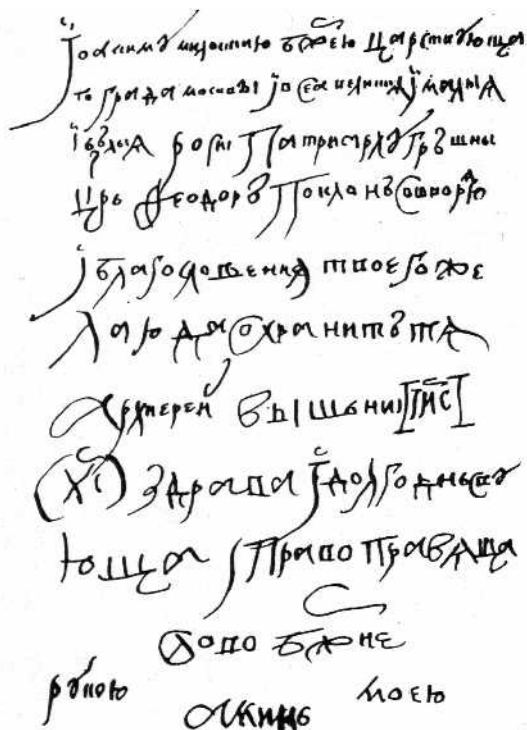 Іоакиму милостию бжею царствующа
го града москвы і всеа великия і малыя
і бѣлыя росиі патриарху грѣшны
црь Феодоръ поклонъ сотворю
і благословения твоего же
лаю да сохранитъ тя
архиереи вышьниі ІИС
(ХС) здрава і долгоденьству
юща і право правяща
слово бжие
рукою моею
аминь